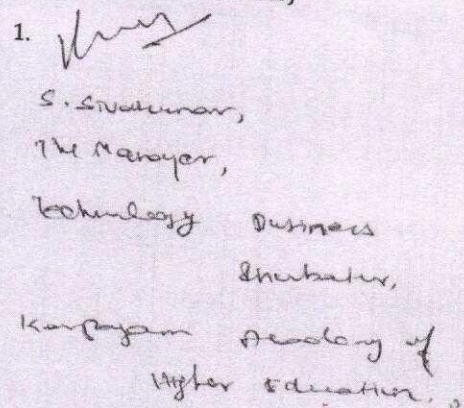 1.
S. Sivakumar,
The Manager,
Technology Business
Incubator,
Karpagam Academy of
Higher Education.